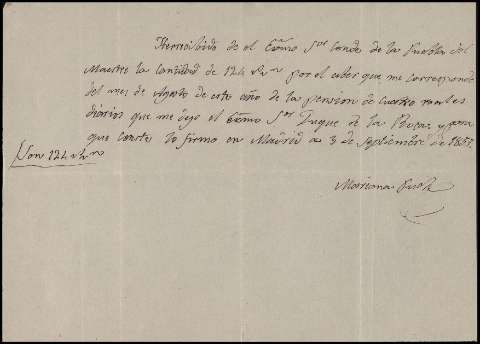 He recibido de el Exmo Sor Conde de la Puebla del
Maestre la Cantidad de 124 rs vn por el aber que me corresponde
del mes de Agosto de este año de la pension de cuatro reales
diarios que me dejo el Exmo Sor Duque de la Roca y para
que conste lo firmo en Madrid a 3 de Septiembre de
Son 124 rs vn
Mariana